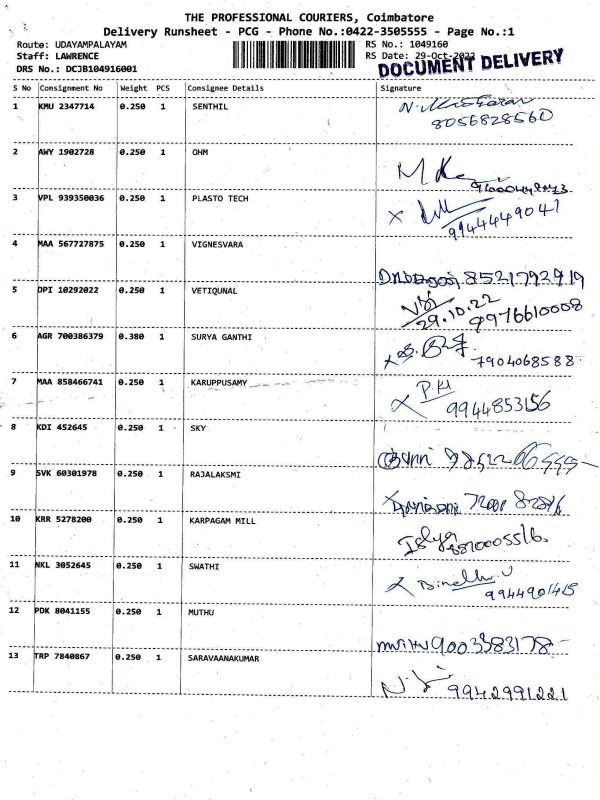 THE PROFESSIONAL COURIERS, Coimbatore
Delivery Runsheet - PCG - Phone No.:0422-3505555 - Page No.:1
Route: UDAYAMPALAYAM RS No.: 1049160
Staff: LAWRENCE RS Date: 29-Oct-2022
DRS No.: DCJB104916001 DOCUMENT DELIVERY
S No Consignment No Weight PCS Consignee Details Signature
1 KMU 2347714 0.250 1 SENTHIL
8056828560
2 AWY 1902728 0.250 1 OHM
3 VPL 939350036 0.250 1 PLASTO TECH
X 9944449047
4 MAA 567727875 0.250 1 VIGNESVARA
8521792919
5 DPI 10292022 0.250 1 VETIQUNAL
29.10.22 9976610008
6 AGR 700386379 0.380 1 SURYA GANTHI
7904068588
7 MAA 858466741 0.250 1 KARUPPUSAMY
9944853156
8 KDI 452645 0.250 1 SKY
9 SVK 60301978 0.250 1 RAJALAKSMI
10 KRR 5278200 0.250 1 KARPAGAM MILL
11 NKL 3052645 0.250 1 SWATHI
9944901415
12 PDK 8041155 0.250 1 MUTHU
9003383178
13 TRP 7840867 0.250 1 SARAVAANAKUMAR
9942991221